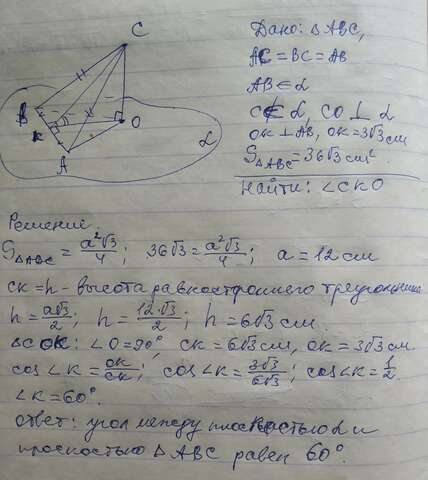 C
B
K
A
O
α
Дано: △ABC,
AC = BC = AB
AB ∈ α
C ∉ α, CO ⊥ α
OK ⊥ AB, OK = 3√3 см
S△ABC = 36√3 см².
Найти: ∠CKO
Решение
S△ABC = a²√3/4 ; 36√3 = a²√3/4 ; a = 12 см
CK = h - высота равностороннего треугольника
h = a√3/2 ; h = 12·√3/2 ; h = 6√3 см.
△COK: ∠O = 90°, CK = 6√3 см, OK = 3√3 см.
cos∠K = OK/CK ; cos∠K = 3√3/6√3 ; cos∠K = 1/2.
∠K = 60°.
Ответ: угол между плоскостью α и
плоскостью △ABC равен 60°.